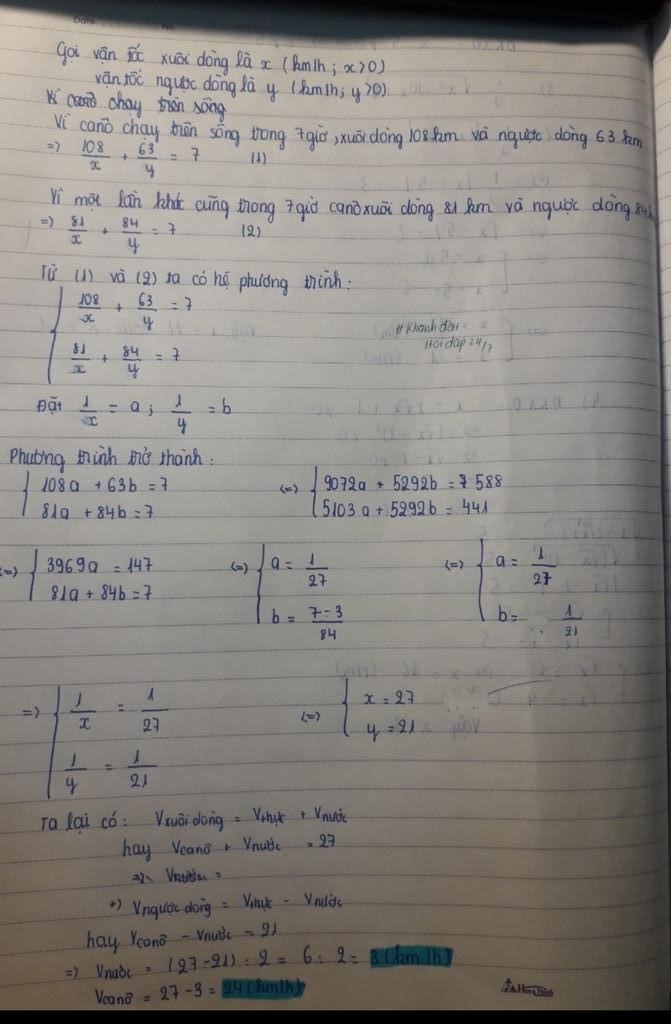 Date: No.
Gọi vận tốc xuôi dòng là x (km/h; x>0)
vận tốc ngược dòng là y (km/h; y>0)
Vì canô chạy trên sông
Vì canô chạy trên sông trong 7 giờ, xuôi dòng 108 km và ngược dòng 63 km
=> 108/x + 63/y = 7 (1)
Vì một lần khác cũng trong 7 giờ canô xuôi dòng 81 km và ngược dòng 84
=> 81/x + 84/y = 7 (2)
Từ (1) và (2) ta có hệ phương trình:
{ 108/x + 63/y = 7
81/x + 84/y = 7
# Khanh đan
Hoi dap 24/7
Đặt 1/x = a; 1/y = b
Phương trình trở thành:
{ 108a + 63b = 7 <=> { 9072a + 5292b = 588
81a + 84b = 7 5103a + 5292b = 441
<=> { 3969a = 147 <=> { a = 1/27 <=> { a = 1/27
81a + 84b = 7 b = 7-3/84 b = 1/21
=> { 1/x = 1/27 <=> { x = 27
1/y = 1/21 y = 21
Ta lại có: Vxuôi dòng = Vthực + Vnước
hay Vcanô + Vnước = 27
+) Vngược dòng = Vthực - Vnước
hay Vcanô - Vnước = 21
=> Vnước = (27-21) : 2 = 6 : 2 = 3 (km/h)
Vcanô = 27-3 = 24 (km/h)